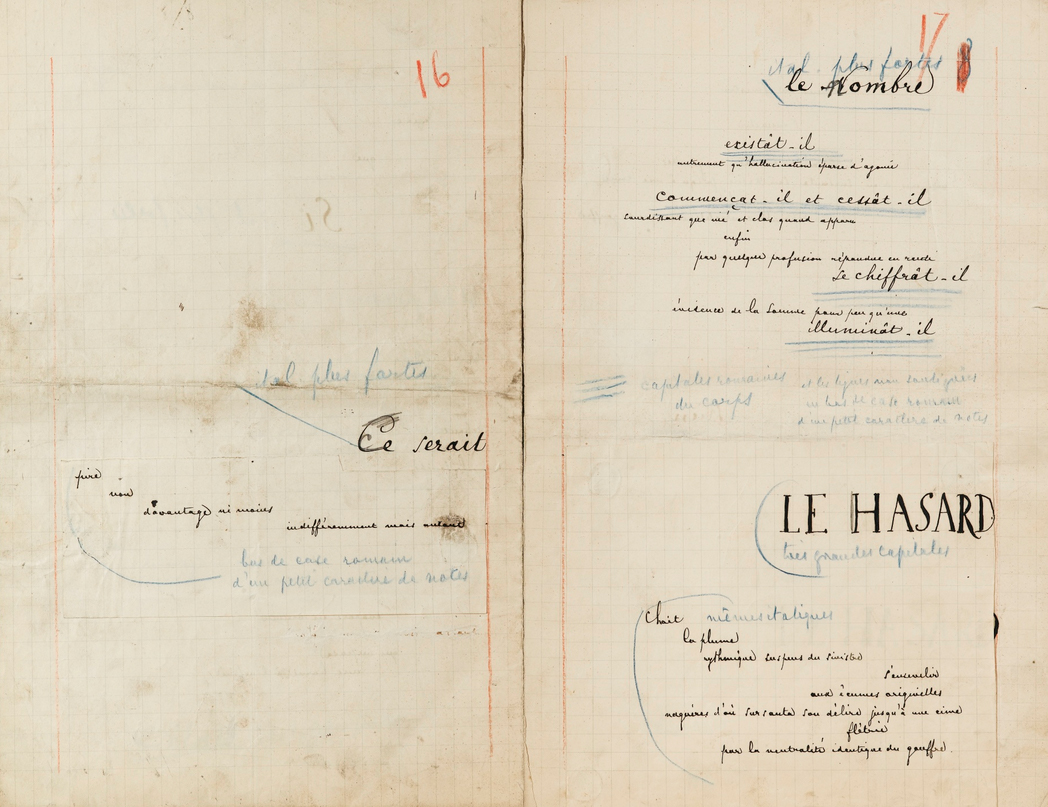 16
ital plus fortes
Ce serait
pire
non
davantage ni moins
indifféremment mais autant
bas de casse romain
d'un petit caractère de notes
17
ital. plus fortes
le Nombre
existât-il
autrement qu'hallucination éparse d'agonie
commençât-il et cessât-il
sourdissant que nié et clos quand apparu
enfin
par quelque profusion répandue en rareté
se chiffrât-il
évidence de la somme pour peu qu'une
illuminât-il
capitales romaines
du corps
et les lignes non soulignées
en bas de casse romain
d'un petit caractère de notes
LE HASARD
très grandes capitales
Choit
mêmes italiques
la plume
rythmique suspens du sinistre
s'ensevelir
aux écumes originelles
naguères d'où sursauta son délire jusqu'à une cime
flétrie
par la neutralité identique du gouffre.